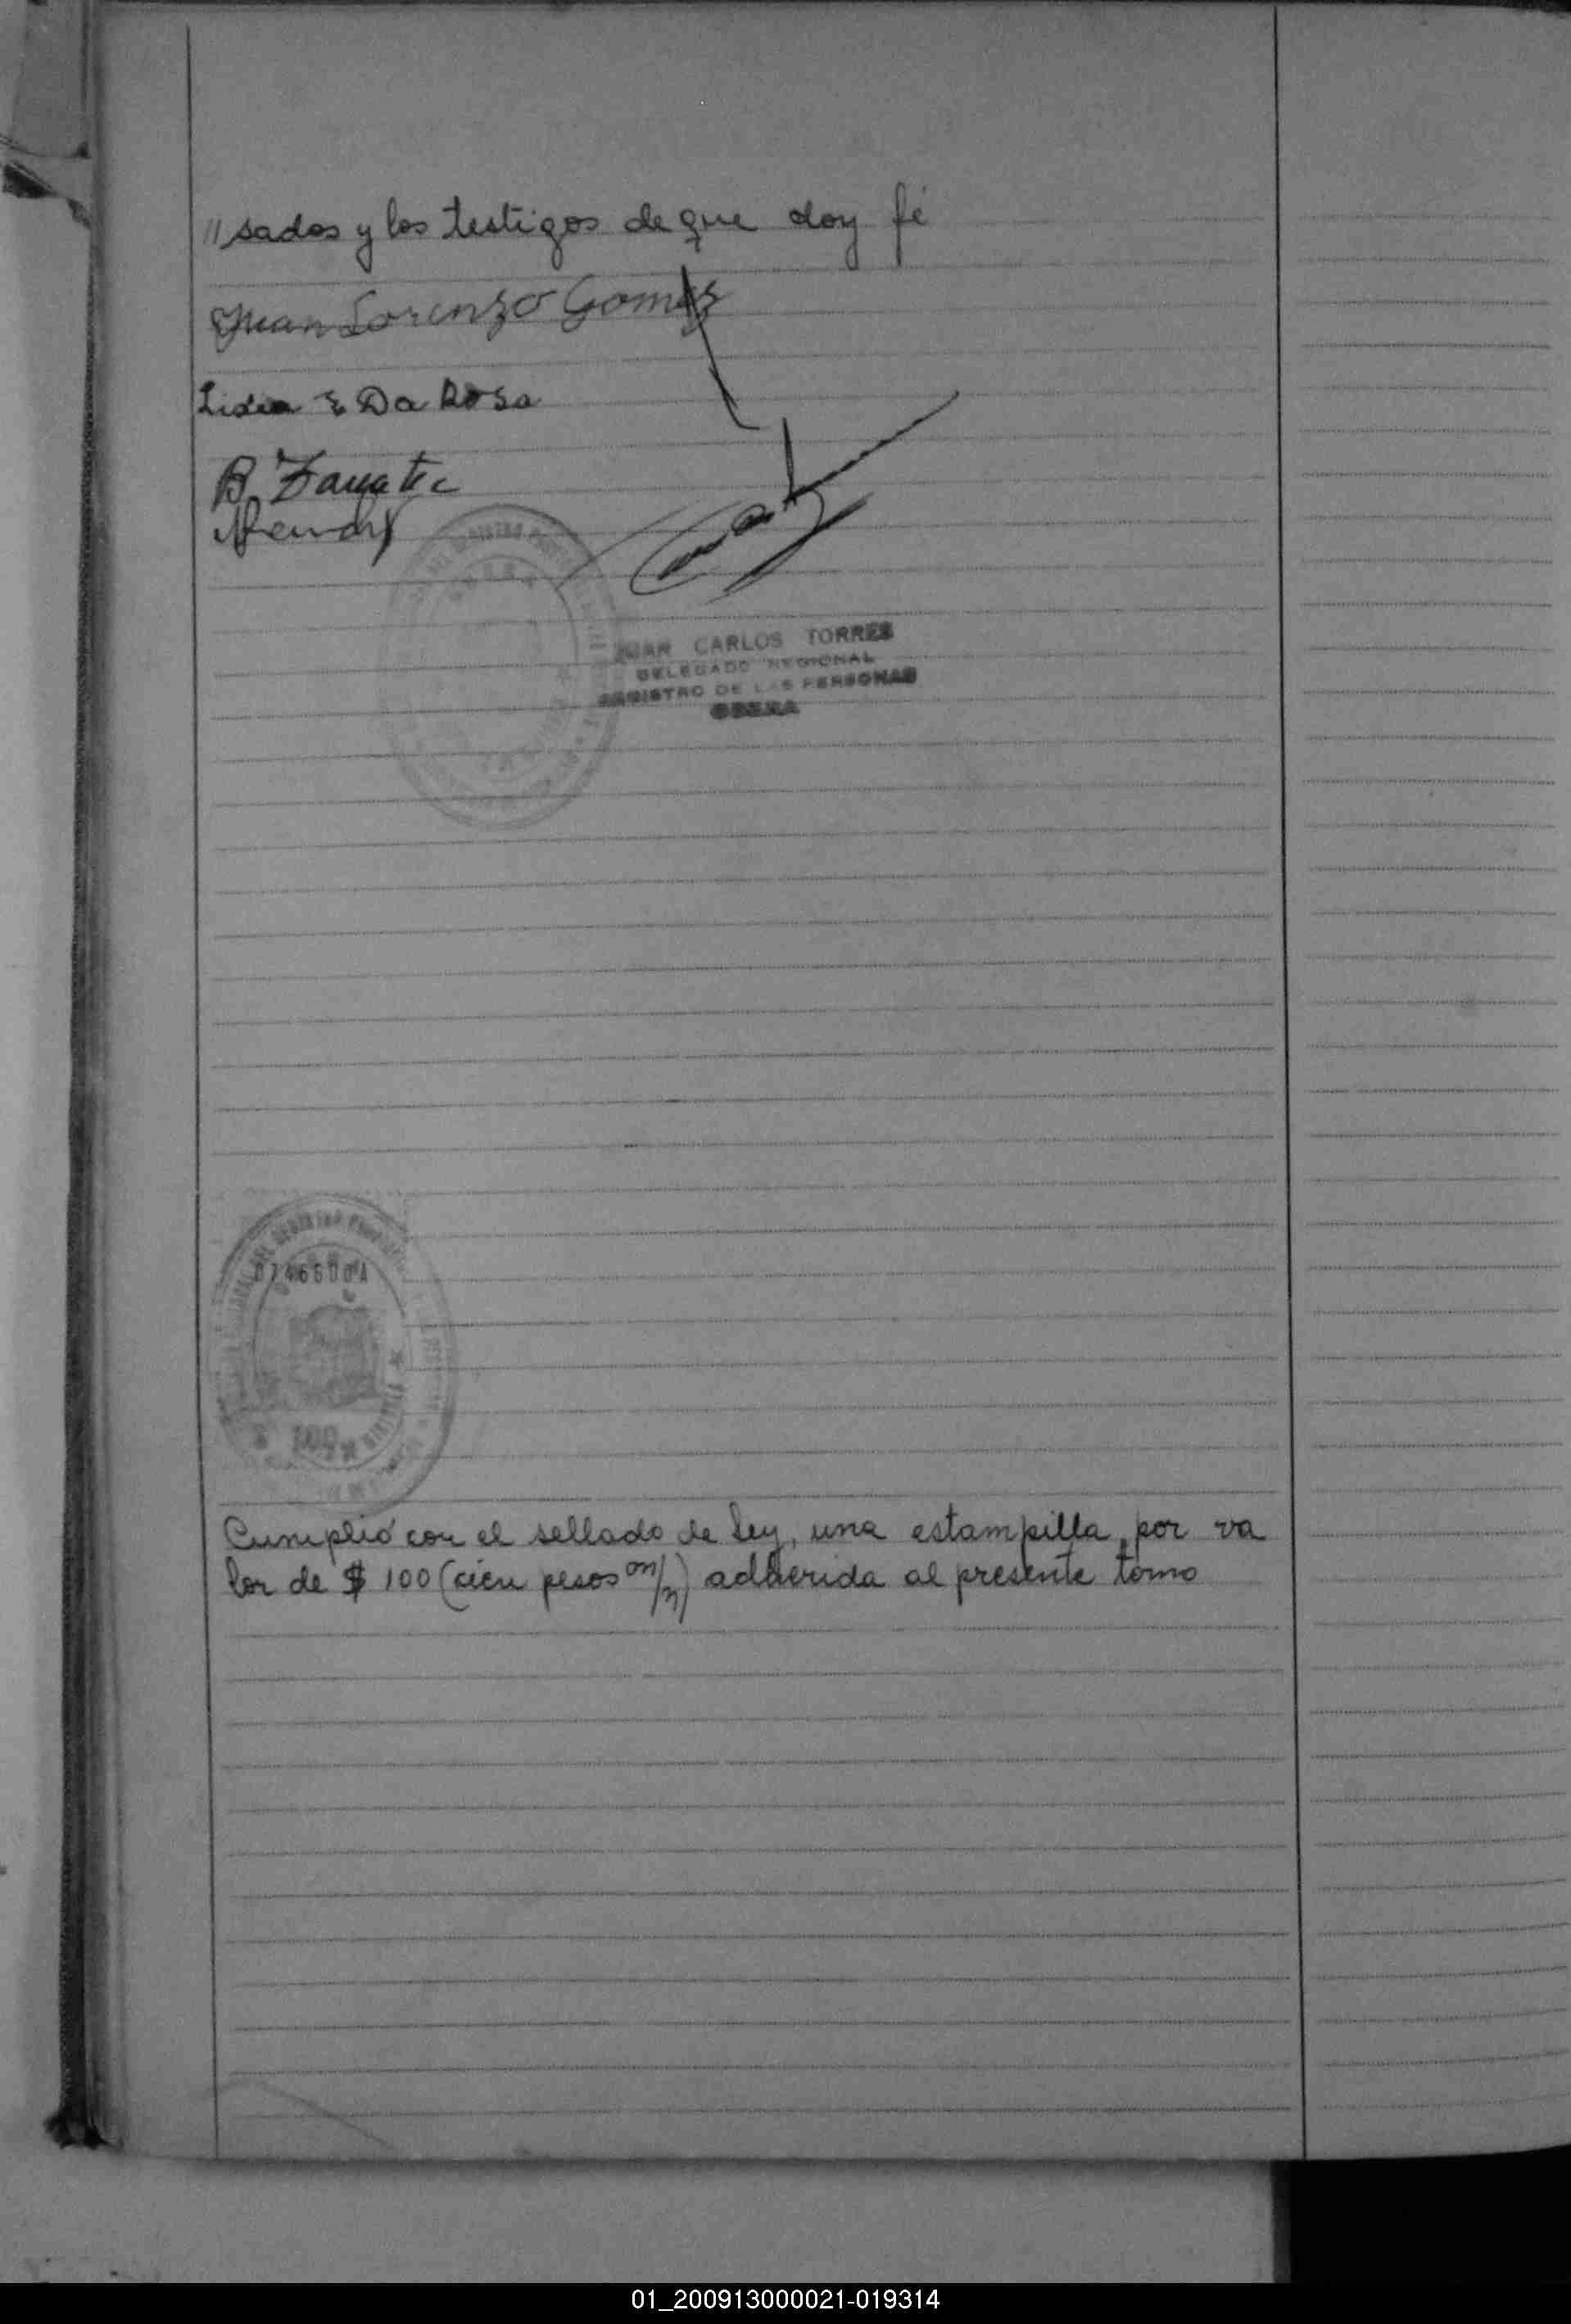 // sados y los testigos de que doy fé
Juan Lorenzo Gomez
Lidia E Da Rosa
B. Zarate
JUAN CARLOS TORRES
DELEGADO REGIONAL
REGISTRO DE LAS PERSONAS
OBERA
$ 100
Cumplió con el sellado de Ley, una estampilla por va
lor de $ 100 (cien pesos m/n) adherida al presente tomo
01_200913000021-019314